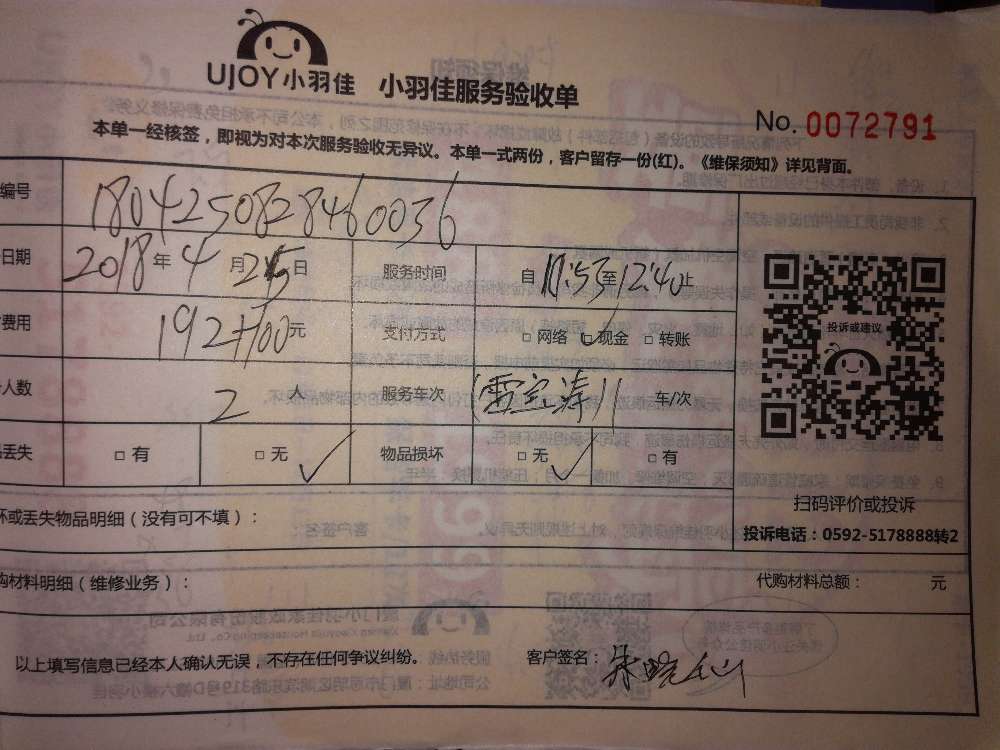 UJOY小羽佳 小羽佳服务验收单
No. 0072791
本单一经核签，即视为对本次服务验收无异议。本单一式两份，客户留存一份(红)。《维保须知》详见背面。
编号 1804250828460036
日期 2018年4月25日 服务时间 自 至12:40止
费用 192+100元 支付方式 □网络 □现金 □转账
人数 2人 服务车次 雷宝涛 车/次
丢失 □有 □无 ✓ 物品损坏 □无 ✓ □有
投诉或建议
扫码评价或投诉
投诉电话：0592-5178888转2
坏或丢失物品明细（没有可不填）：
购材料明细（维修业务）： 代购材料总额： 元
以上填写信息已经本人确认无误，不存在任何争议纠纷。 客户签名：